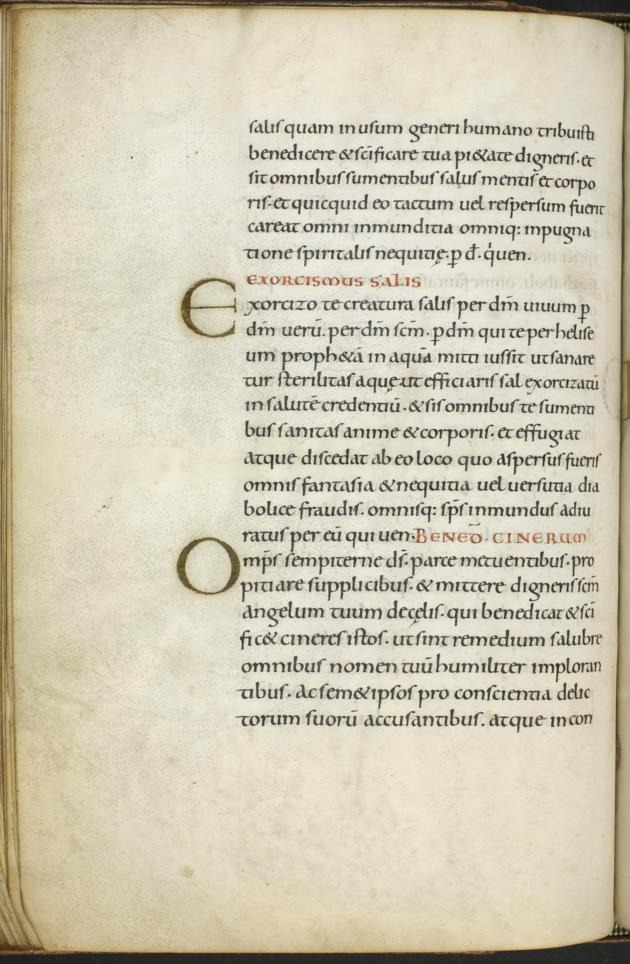 salis quam in usum generi humano tribuisti
benedicere & scificare tua pi&ate digneris. et
sit omnibus sumentibus salus mentis et corpo
ris. et quicquid eo tactum uel respersum fuerit
careat omni inmunditia omniq: inpugna
tione spiritalis nequitię. p̄ d̄. q̇uen.
EXORCISMUS SALIS
Exorcizo te creatura salis per dm̄ uiuum p̄
dm̄ uerū. per dm̄ scm̄. p̄ dm̄ qui te per helise
um proph&ā in aquā mitti iussit ut sanare
tur sterilitas aquę. ut efficiaris sal exorcizatū
in salutē credentiū. & sis omnibus te sumenti
bus sanitas anime & corporis. et effugiat
atque discedat ab eo loco quo aspersus fueris
omnis fantasia & nequitia uel uersutia dia
bolice fraudis. omnisq: sp̄s inmundus adiu
ratus per eū qui uen. BENED̄. CINERUM
Omp̄s sempiterne ds̄. parce metuentibus. pro
pitiare supplicibus. & mittere digneris scm̄
angelum tuum decęlis. qui benedicat & sci
fic& cineres istos. ut sint remedium salubre
omnibus nomen tuū humiliter imploran
tibus. Ac sem&ipsos pro conscientia delic
torum suorū accusantibus. atque in con